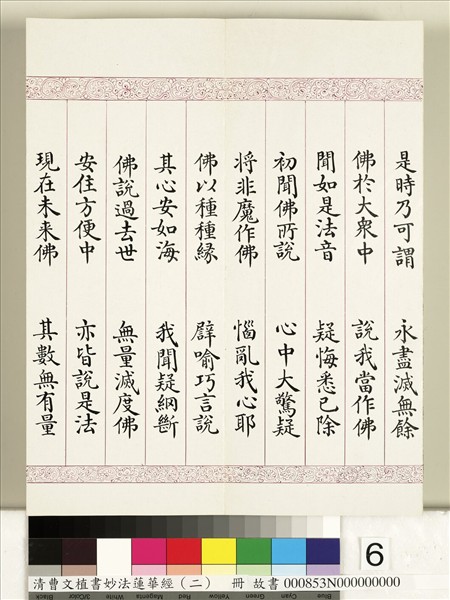 是時乃可謂　永盡滅無餘
佛於大衆中　說我當作佛
聞如是法音　疑悔悉已除
初聞佛所說　心中大驚疑
将非魔作佛　惱亂我心耶
佛以種種縁　譬喻巧言說
其心安如海　我聞疑網斷
佛說過去世　無量滅度佛
安住方便中　亦皆說是法
現在未来佛　其數無有量
6
Blue Cyan Green Yellow Red Magenta White 3/Color Black
清曹文植書妙法蓮華經（二）　冊 故書 000853N000000000